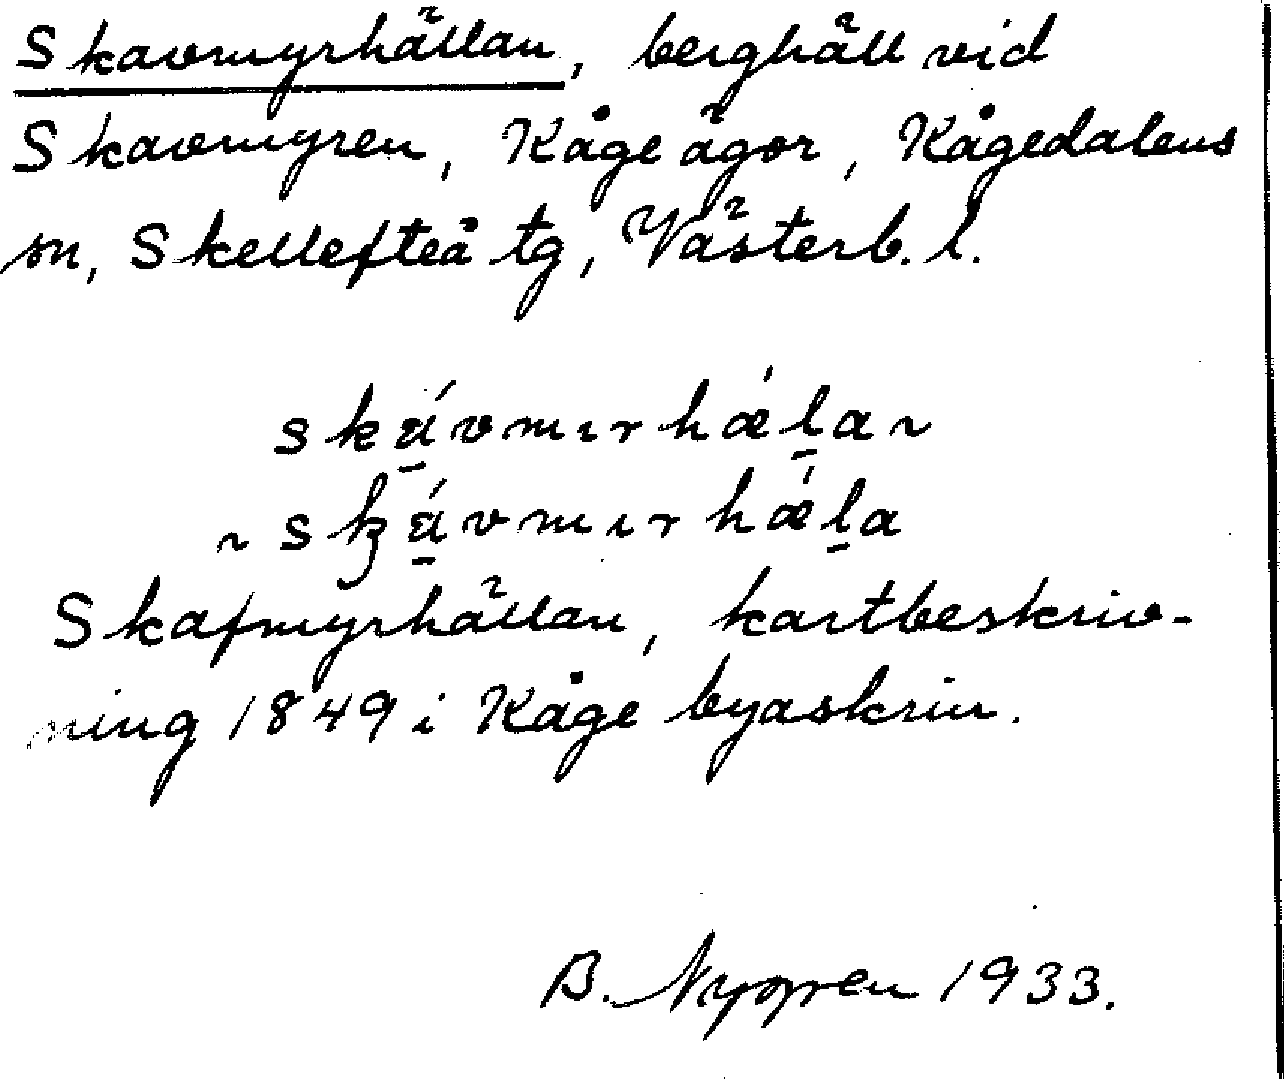 Skavmyrhällan, berghäll vid
Skavmyren, Kåge ägor, Kågedalens
sn, Skellefteå tg, Västerb. l.
skạ́vmırhǽl̠a ~
~ skạ́vmırhǽl̠a
Skafmyrhällan, kartbeskriv-
ning 1849 i Kåge byaskrin.
B. Nygren 1933.